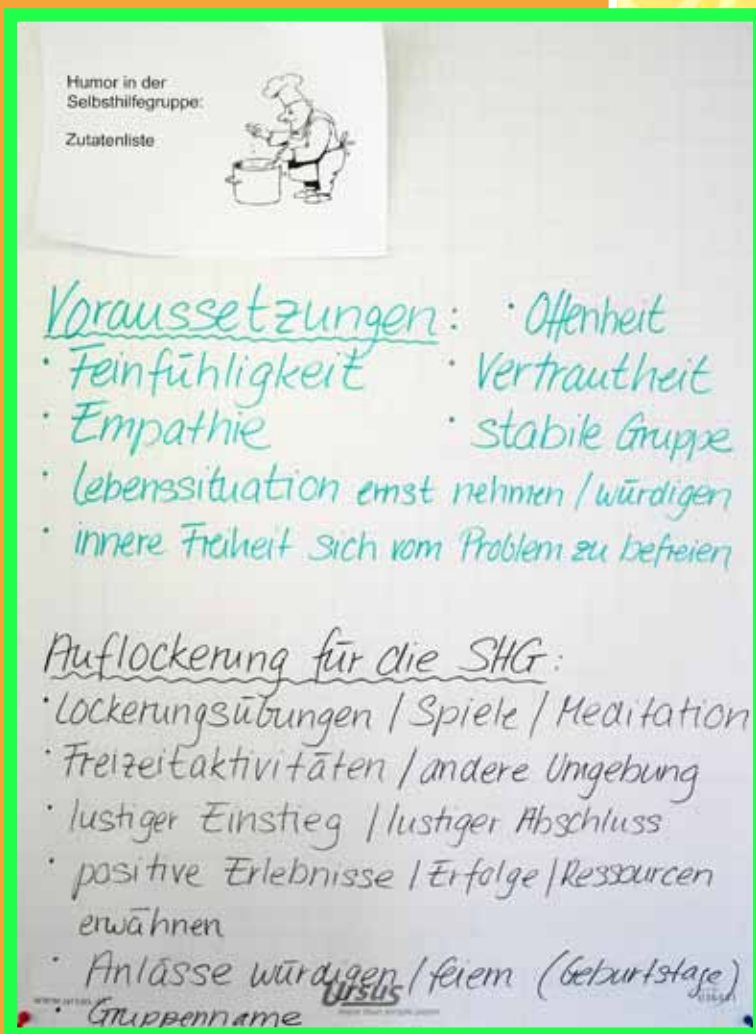 Humor in der
Selbsthilfegruppe:
Zutatenliste
Voraussetzungen: · Offenheit
· Feinfühligkeit · Vertrautheit
· Empathie · stabile Gruppe
· Lebenssituation ernst nehmen / würdigen
· innere Freiheit sich vom Problem zu befreien
Auflockerung für die SHG:
· Lockerungsübungen / Spiele / Meditation
· Freizeitaktivitäten / andere Umgebung
· lustiger Einstieg / lustiger Abschluss
· positive Erlebnisse / Erfolge / Ressourcen
erwähnen
· Anlässe würdigen / feiern (Geburtstage)
Ursus
· Gruppenname